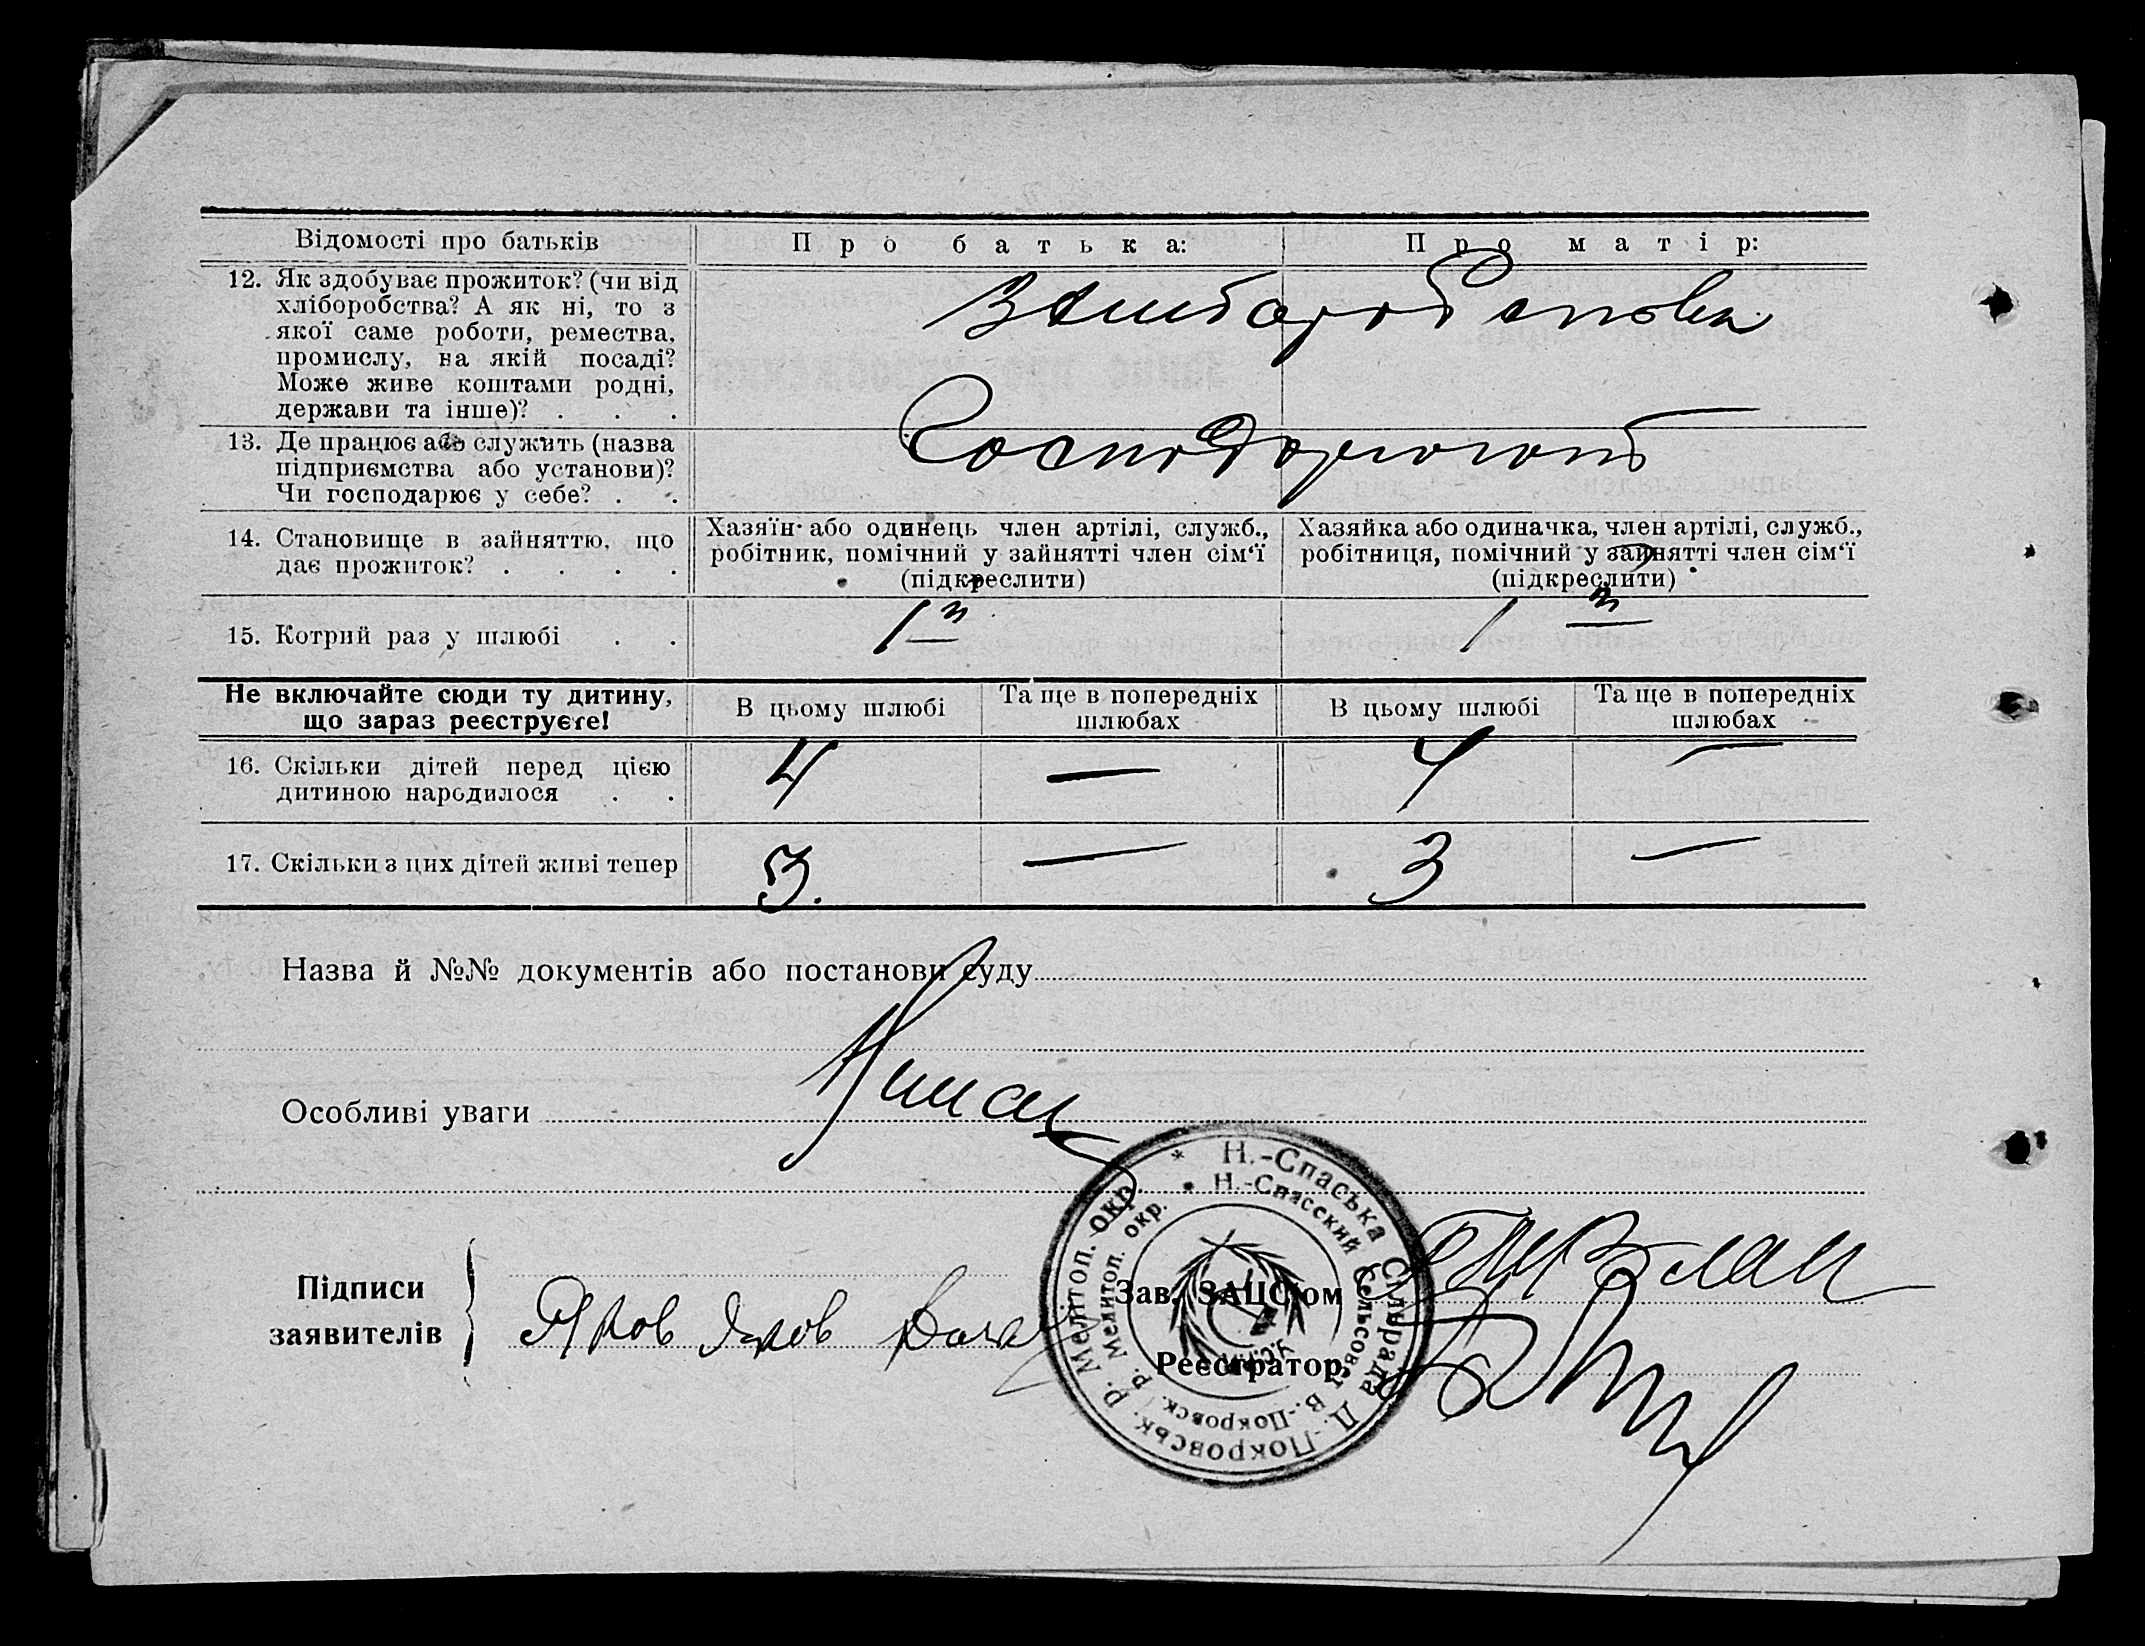 Відомості про батьків
Про батька:
Про матір:
12. Як здобуває прожиток? (чи від
хліборобства? А як ні, то з
якої саме роботи, ремества,
промислу, на якій посаді?
Може живе коштами родні,
держави та інше)? . . .
13. Де працює або служить (назва
підприємства або установи)?
Чи господарює у себе? . .
14. Становище в зайняттю, що
дає прожиток? . . . .
Хазяїн або одинець член артілі, служб.,
робітник, помічний у зайнятті член сім'ї
(підкреслити)
Хазяйка або одиначка, член артілі, служб.,
робітниця, помічний у зайнятті член сім'ї
(підкреслити)
15. Котрий раз у шлюбі . .
1й
1й
Не включайте сюди ту дитину,
що зараз реєструєте!
В цьому шлюбі
Та ще в попередніх
шлюбах
В цьому шлюбі
Та ще в попередніх
шлюбах
16. Скільки дітей перед цією
дитиною народилося . .
4 — 4 —
17. Скільки з цих дітей живі тепер
3. — 3 —
Назва й №№ документів або постанови суду
Особливі уваги
Немає
Підписи
заявителів
Яков Яков
Зав. ЗАЦС'ом
Реєстратор
* Н.-Спаська Сільрада Д.-Покровськ. р. Мелітоп. окр.
* Н.-Спасский Сельсовет В.-Покровск. р. Мелитоп. окр.
У.С.Р.Р.